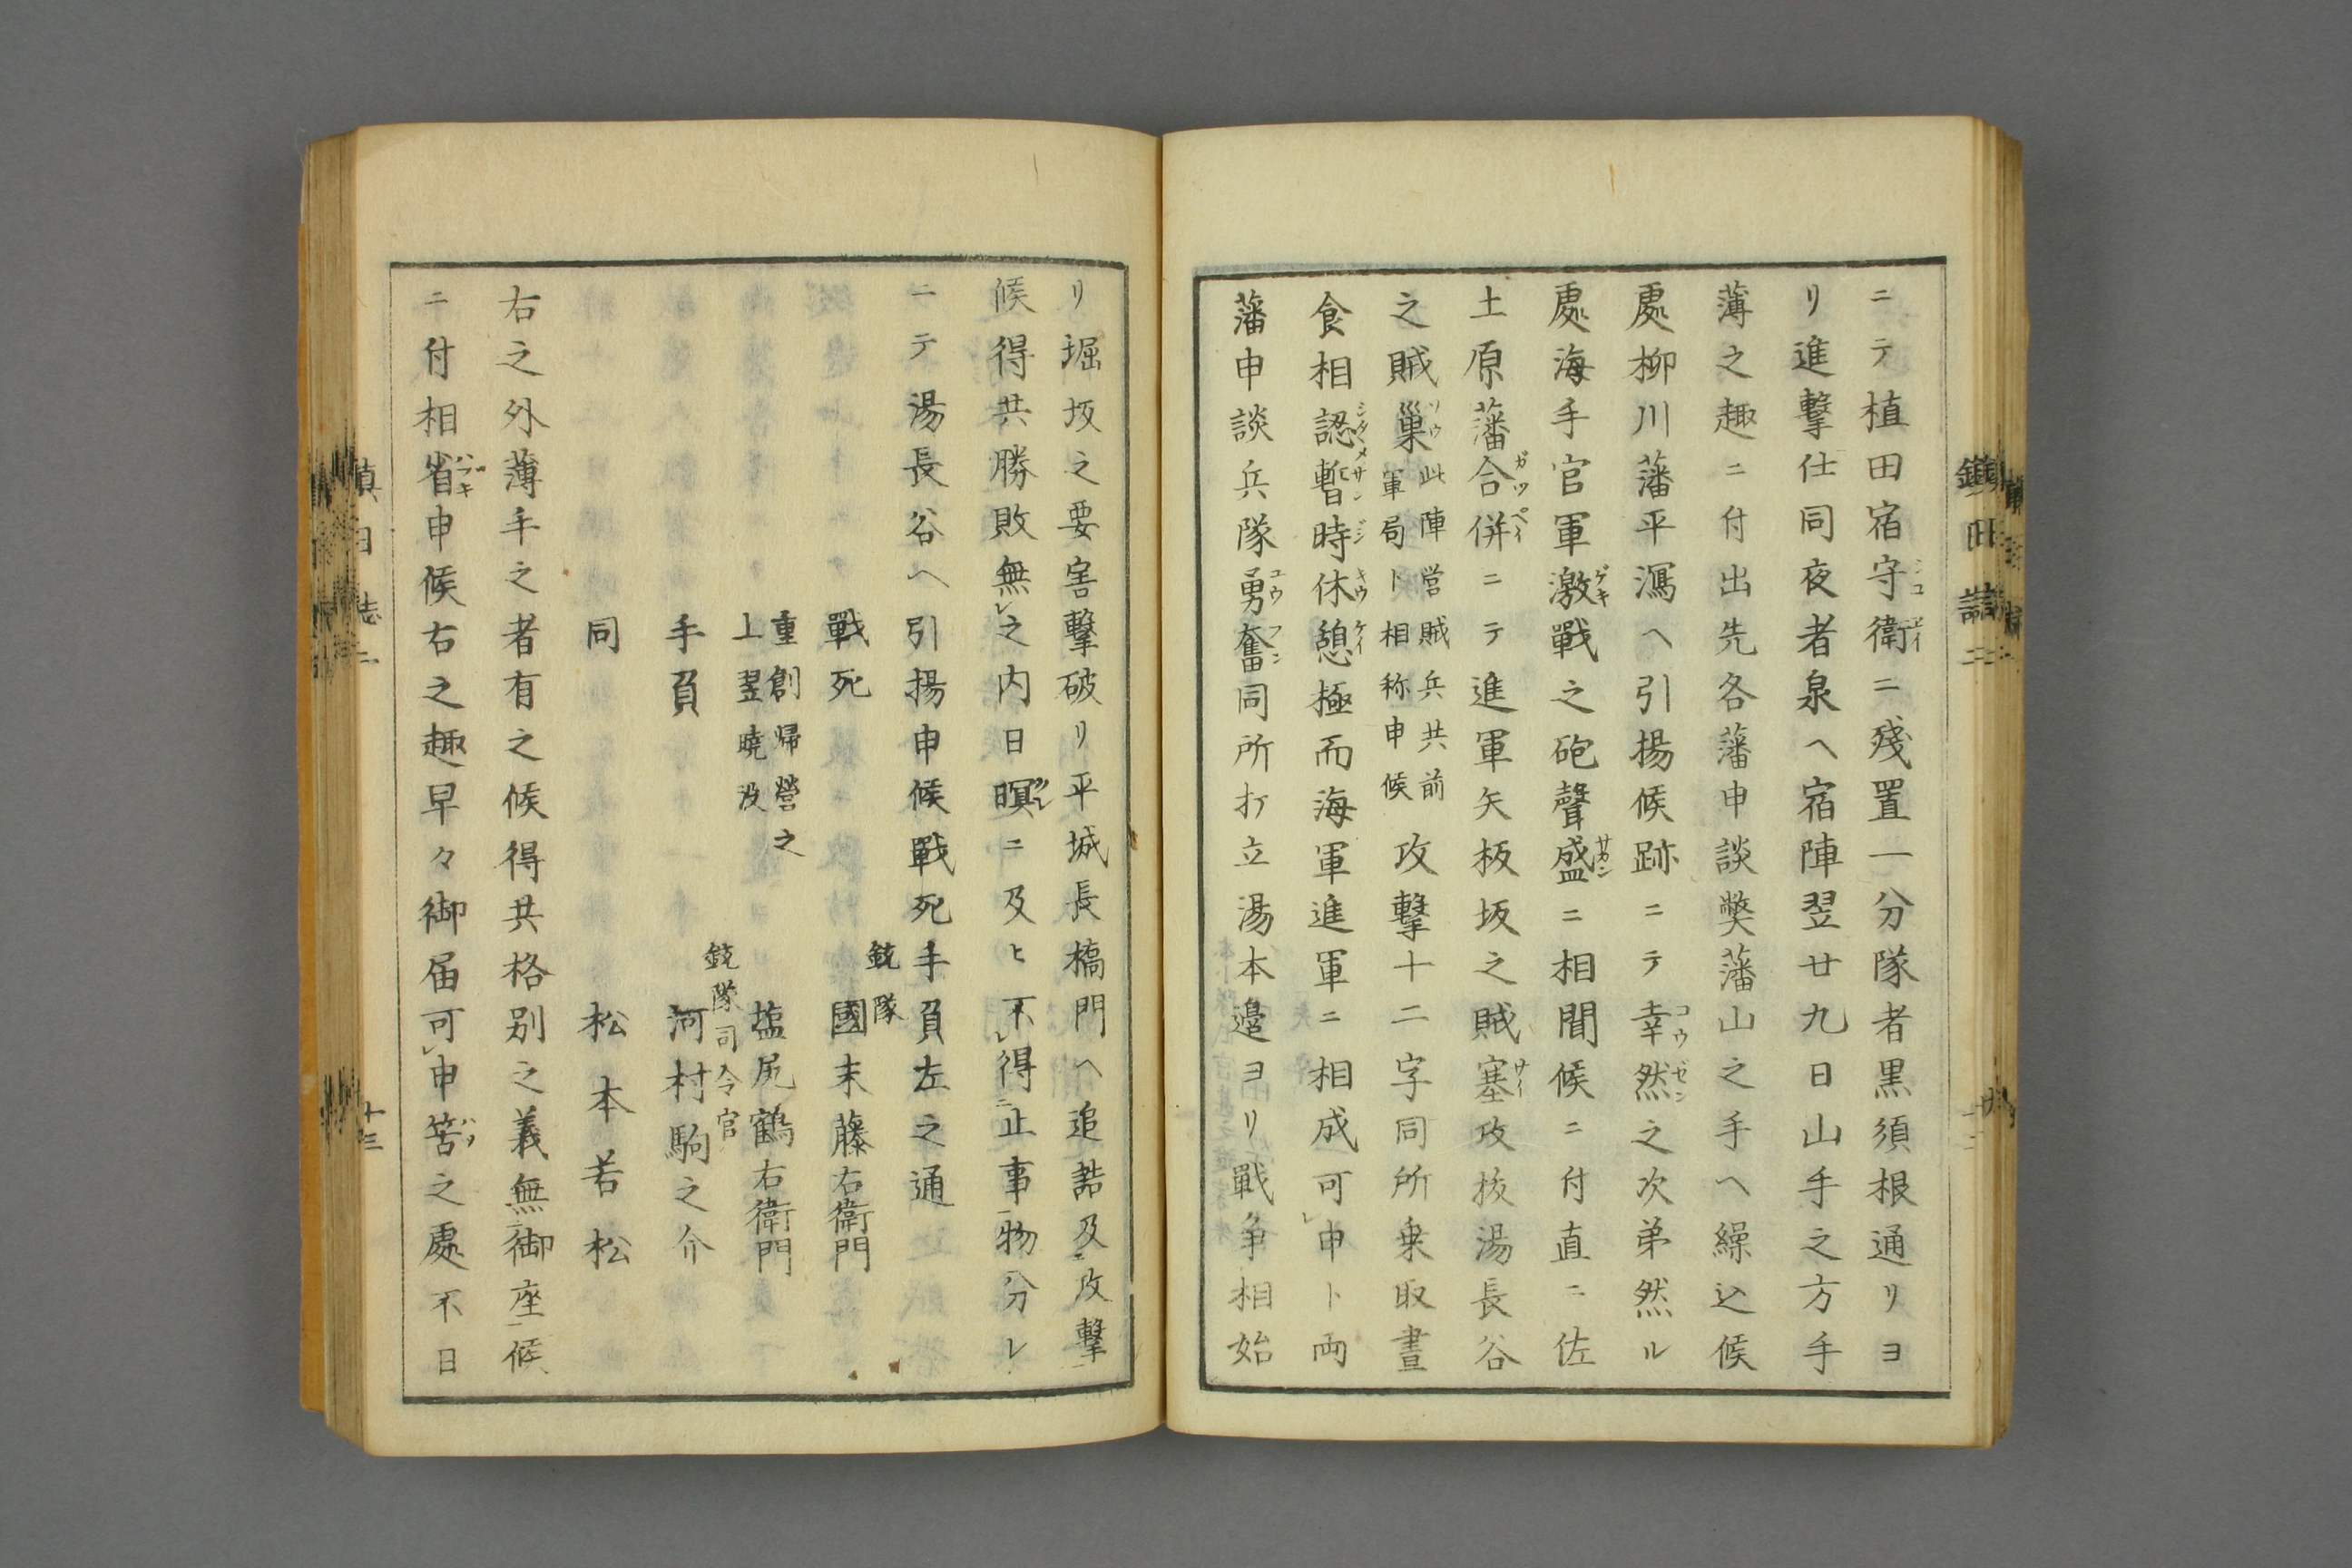 ニテ植田宿守衛ニ殘置一分隊者黒須根通リヨ
リ進撃仕同夜者泉ヘ宿陣翌廿九日山手之方手
薄之趣ニ付出先各藩申談弊藩山之手ヘ繰込候
處柳川藩平潟ヘ引揚候跡ニテ幸然之次第然ル
處海手官軍激戰之砲聲盛ニ相聞候ニ付直ニ佐
土原藩合併ニテ進軍矢板坂之賊塞攻抜湯長谷
之賊巢此陣営賊兵共前軍局ト相称申候攻撃十二字同所乗取晝
食相認暫時休憩極而海軍進軍ニ相成可レ申ト両
藩申談兵隊勇奮同所打立湯本邊ヨリ戰争相始
リ堀坂之要害撃破リ平城長橋門ヘ追詰及ニ攻撃一
候得共勝敗無レ之内日暝ニ及ヒ不レ得ニ止事一物分レ
ニテ湯長谷ヘ引揚申候戰死手負左之通
戰死 銃隊 國末藤右衛門
重創帰營之上翌曉没 塩尻鶴右衛門
手負 銃隊司令官 河村駒之介
同 松本若松
右之外薄手之者有之候得共格別之義無ニ御座一候
ニ付相省申候右之趣早々御届可レ申筈之處不日
鎮日誌二
十三